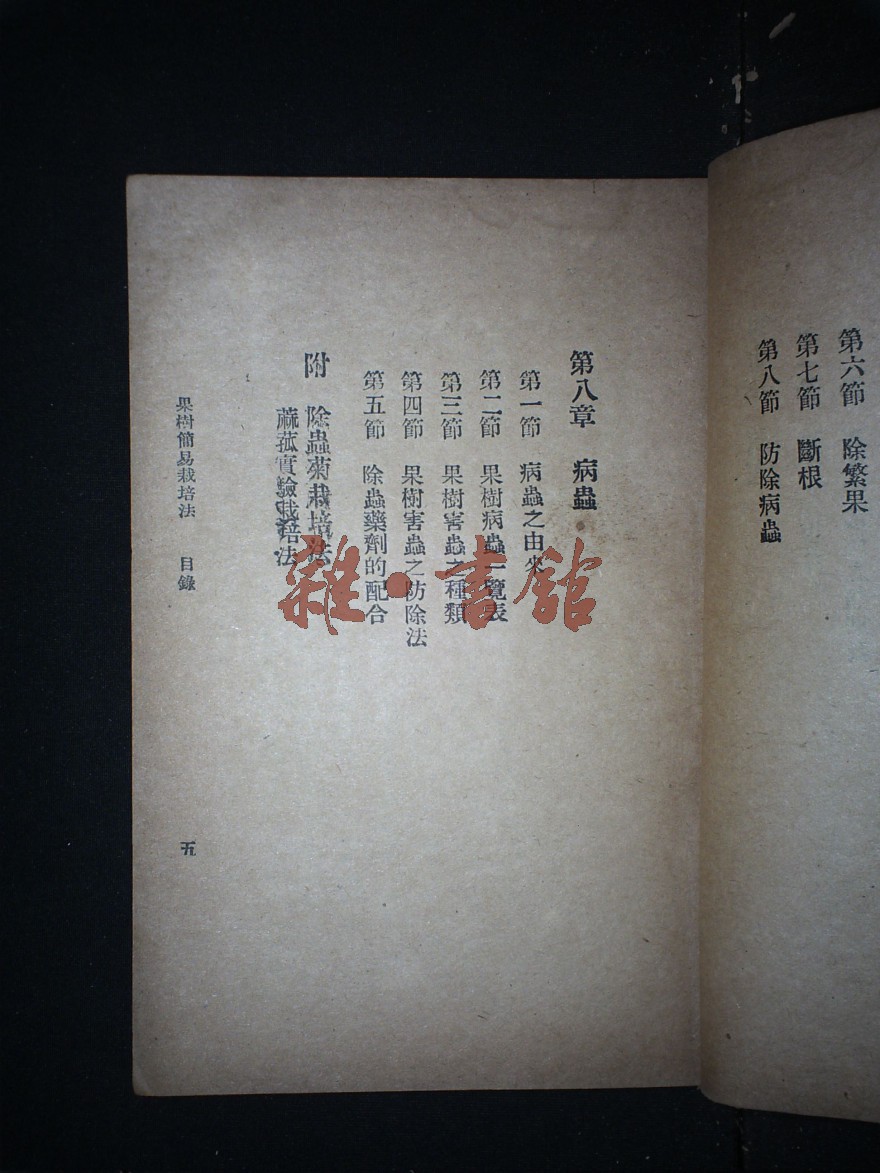 第六節　除繁果
第七節　斷根
第八節　防除病蟲
第八章　病蟲
第一節　病蟲之由來
第二節　果樹病蟲一覽表
第三節　果樹害蟲之種類
第四節　果樹害蟲之防除法
第五節　除蟲藥劑的配合
附　除蟲菊栽培法
蔴菰實驗栽培法
果樹簡易栽培法　目錄
五
雜·書館